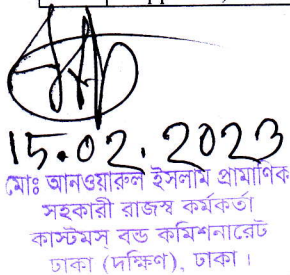 15.02.2023
মোঃ আনওয়ারুল ইসলাম প্রামাণিক
সহকারী রাজস্ব কর্মকর্তা
কাস্টমস্ বন্ড কমিশনারেট
ঢাকা (দক্ষিণ), ঢাকা।